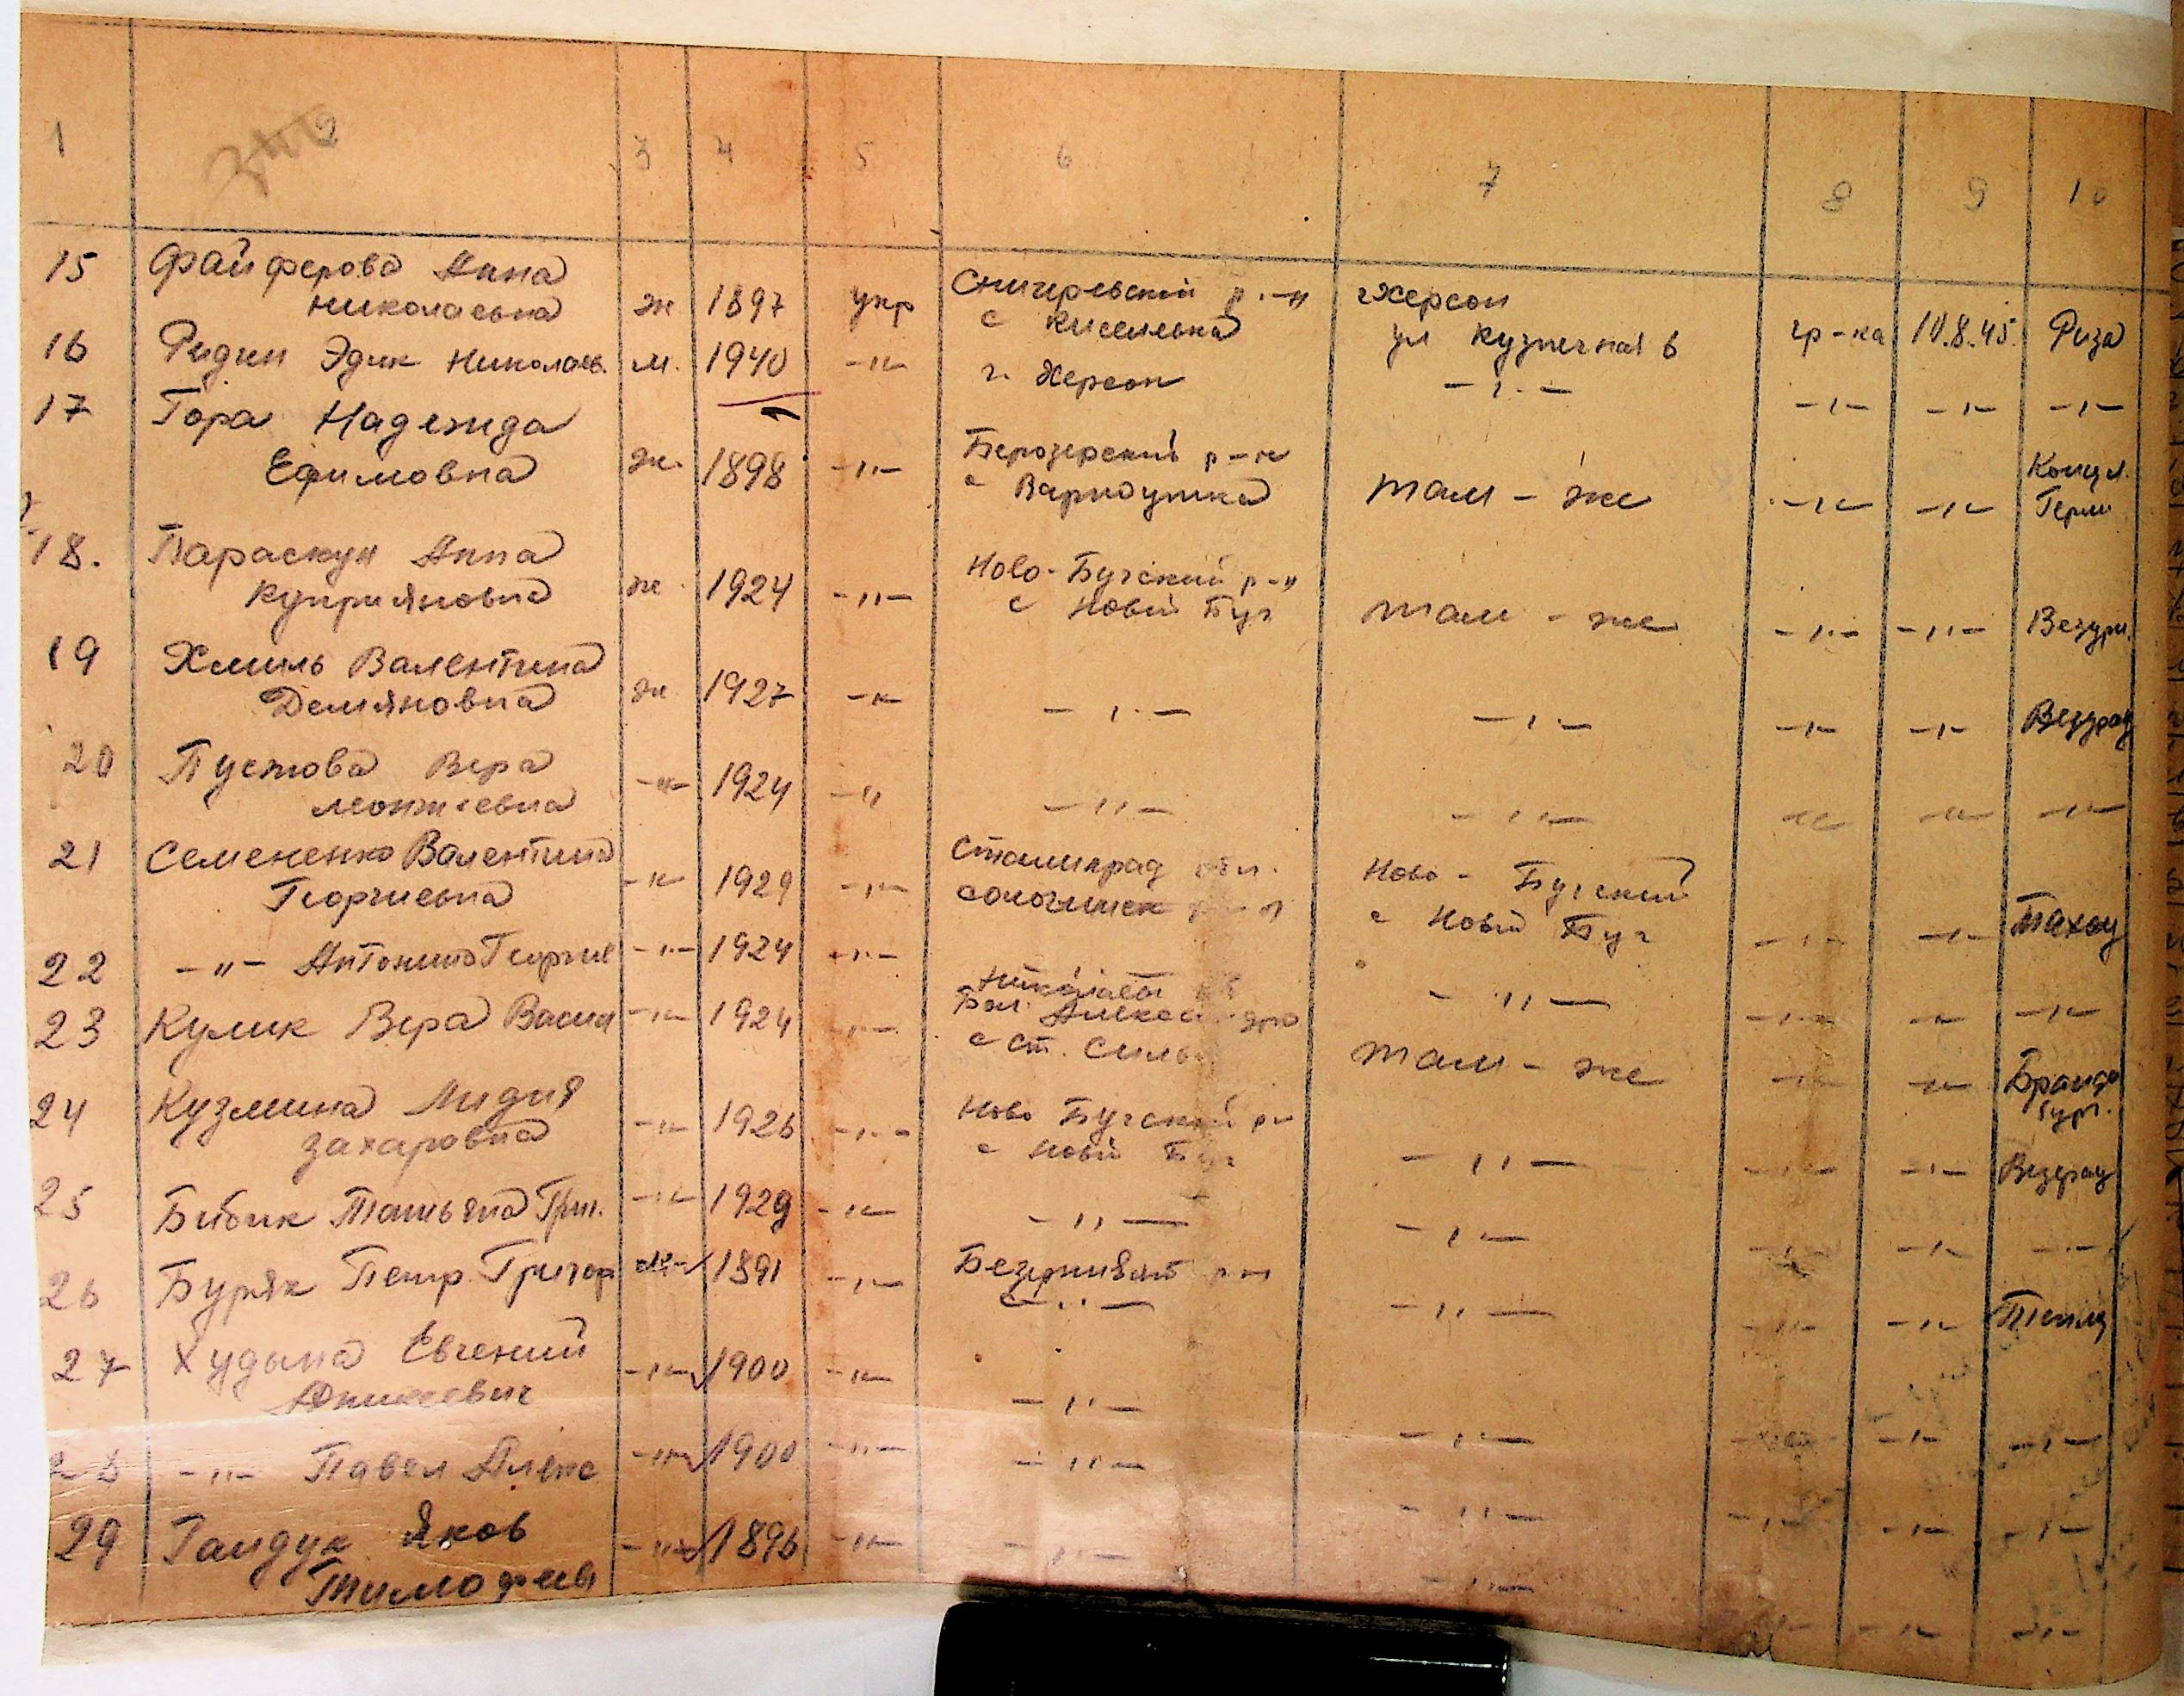 1 3 4 5 6 7 8 9 10
15 Файферова Анна
Николаевна ж 1897 укр Снигиревский р-н г Херсон
с Киселевка ул Кузнечная 6 гр-ка 10.8.45. Риза
16 Ридин Эдик Николаев. м. 1940 -"- г. Херсон -"- -"- -"- -"-
17 Гора Надежда
Ефимовна ж. 1898 -"- Берозерский р-н
с там - же -"- -"- Концл.
Герм
18. Параскун Анна
Куприяновна ж. 1924 -"- Ново-Бугский р-н
с Новый Буг там - же -"- -"-
19 Хмиль Валентина
Демяновна ж 1927 -"- -"- -"- -"- -"-
20 Пустова Вера
Леонтиевна -"- 1924 -"- -"- -"- -"- -"- -"-
21 Семененко Валентина
Георгиевна -"- 1929 -"- Сталинград обл. Ново-Бугский
с Новый Буг -"- -"-
22 -"- Антонина Георгие -"- 1924 -"- -"- -"- -"- -"-
23 Кулик Вера Васил -"- 1924 -"-
с ст. там - же -"- -"- Бранде
бург.
24 Кузмина Лидия
Захаровна -"- 1926 -"- Ново Бугский рн
с Новый Буг -"- -"- -"-
25 Бибик Татьяна Григ. -"- 1929 -"- -"- -"- -"- -"- -"-
26 Буряк Петр Григор 1891 -"- -"- -"- -"-
27 Худына Евгений
-"- 1900 -"- -"- -"- -"- -"- -"-
28 -"- Павел Алекс -"- 1900 -"- -"- -"- -"- -"- -"-
29 Гандук Яков
Тимофеев -"- 1896 -"- -"- -"- -"- -"- -"-